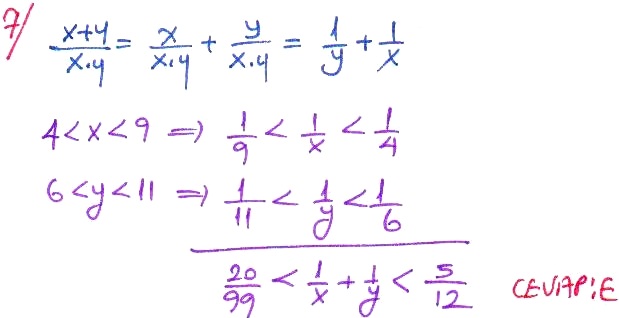 7/ x+y/x.y = x/x.y + y/x.y = 1/y + 1/x
4<x<9 => 1/9 < 1/x < 1/4
6<y<11 => 1/11 < 1/y < 1/6
20/99 < 1/x + 1/y < 5/12 CEVAP:E